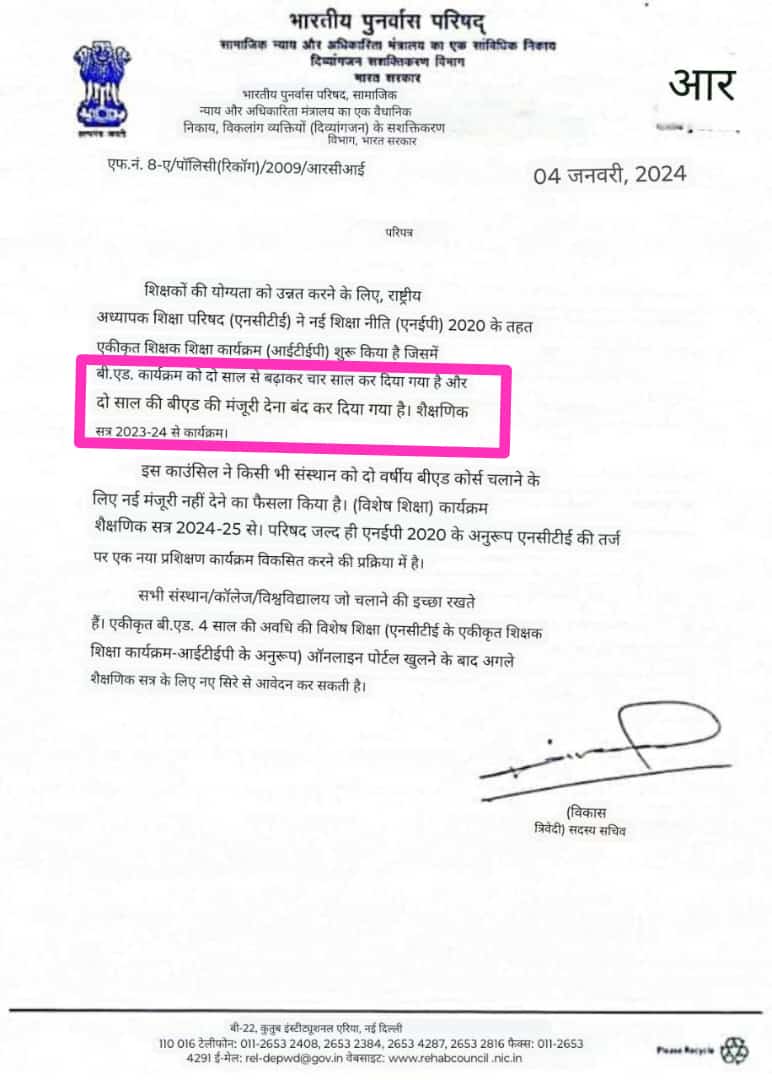 भारतीय पुनर्वास परिषद्
सामाजिक न्याय और अधिकारिता मंत्रालय का एक सांविधिक निकाय
दिव्यांगजन सशक्तिकरण विभाग
भारत सरकार
भारतीय पुनर्वास परिषद, सामाजिक
न्याय और अधिकारिता मंत्रालय का एक वैधानिक
निकाय, विकलांग व्यक्तियों (दिव्यांगजन) के सशक्तिकरण
विभाग, भारत सरकार
सत्यमेव जयते
आर
एफ.नं. 8-ए/पॉलिसी(रिकॉग)/2009/आरसीआई
04 जनवरी, 2024
परिपत्र
शिक्षकों की योग्यता को उन्नत करने के लिए, राष्ट्रीय
अध्यापक शिक्षा परिषद (एनसीटीई) ने नई शिक्षा नीति (एनईपी) 2020 के तहत
एकीकृत शिक्षक शिक्षा कार्यक्रम (आईटीईपी) शुरू किया है जिसमें
बी.एड. कार्यक्रम को दो साल से बढ़ाकर चार साल कर दिया गया है और
दो साल की बीएड की मंजूरी देना बंद कर दिया गया है। शैक्षणिक
सत्र 2023-24 से कार्यक्रम।
इस काउंसिल ने किसी भी संस्थान को दो वर्षीय बीएड कोर्स चलाने के
लिए नई मंजूरी नहीं देने का फैसला किया है। (विशेष शिक्षा) कार्यक्रम
शैक्षणिक सत्र 2024-25 से। परिषद जल्द ही एनईपी 2020 के अनुरूप एनसीटीई की तर्ज
पर एक नया प्रशिक्षण कार्यक्रम विकसित करने की प्रक्रिया में है।
सभी संस्थान/कॉलेज/विश्वविद्यालय जो चलाने की इच्छा रखते
हैं। एकीकृत बी.एड. 4 साल की अवधि की विशेष शिक्षा (एनसीटीई के एकीकृत शिक्षक
शिक्षा कार्यक्रम-आईटीईपी के अनुरूप) ऑनलाइन पोर्टल खुलने के बाद अगले
शैक्षणिक सत्र के लिए नए सिरे से आवेदन कर सकती है।
(विकास
त्रिवेदी) सदस्य सचिव
बी-22, कुतुब इंस्टीट्यूशनल एरिया, नई दिल्ली
110 016 टेलीफोन: 011-2653 2408, 2653 2384, 2653 4287, 2653 2816 फैक्स: 011-2653
4291 ई-मेल: rel-depwd@gov.in वेबसाइट: www.rehabcouncil .nic.in
Please Recycle